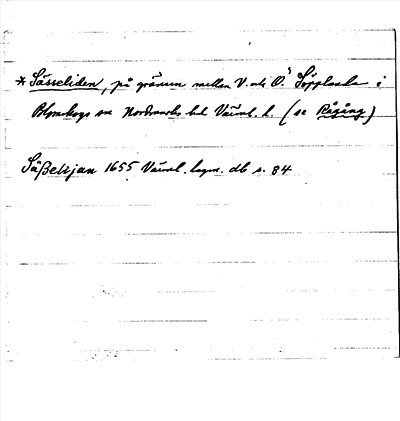 * Sässeliden, på gränsen mellan V. och Ö. Töpplanda i
Blomskogs sn Nordmarks hd Värml. l. (se Rågång)
Säßelijan 1655 Värml. lagm. db s. 84